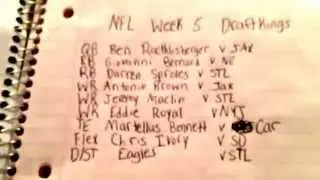 NFL Week 5 Draft Kings
QB Ben Roethlisberger v JAX
RB Giovanni Bernard v NE
RB Darren Sproles v STL
WR Antonio Brown v Jax
WR Jeremy Maclin v STL
WR Eddie Royal v NYJ
TE Martellus Bennett v Car
Flex Chris Ivory v SD
D/ST Eagles v STL